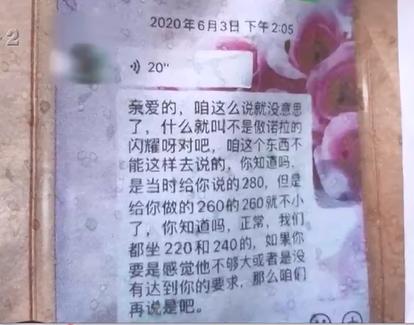 -2
2020年6月3日 下午2:05
20"
亲爱的，咱这么说就没意思
了，什么就叫不是傲诺拉的
闪耀呀对吧，咱这个东西不
能这样去说的，你知道吗，
是当时给你说的280，但是
给你做的260的260就不小
了，你知道吗，正常，我们
都坐220和240的，如果你
要是感觉他不够大或者是没
有达到你的要求，那么咱们
再说是吧。